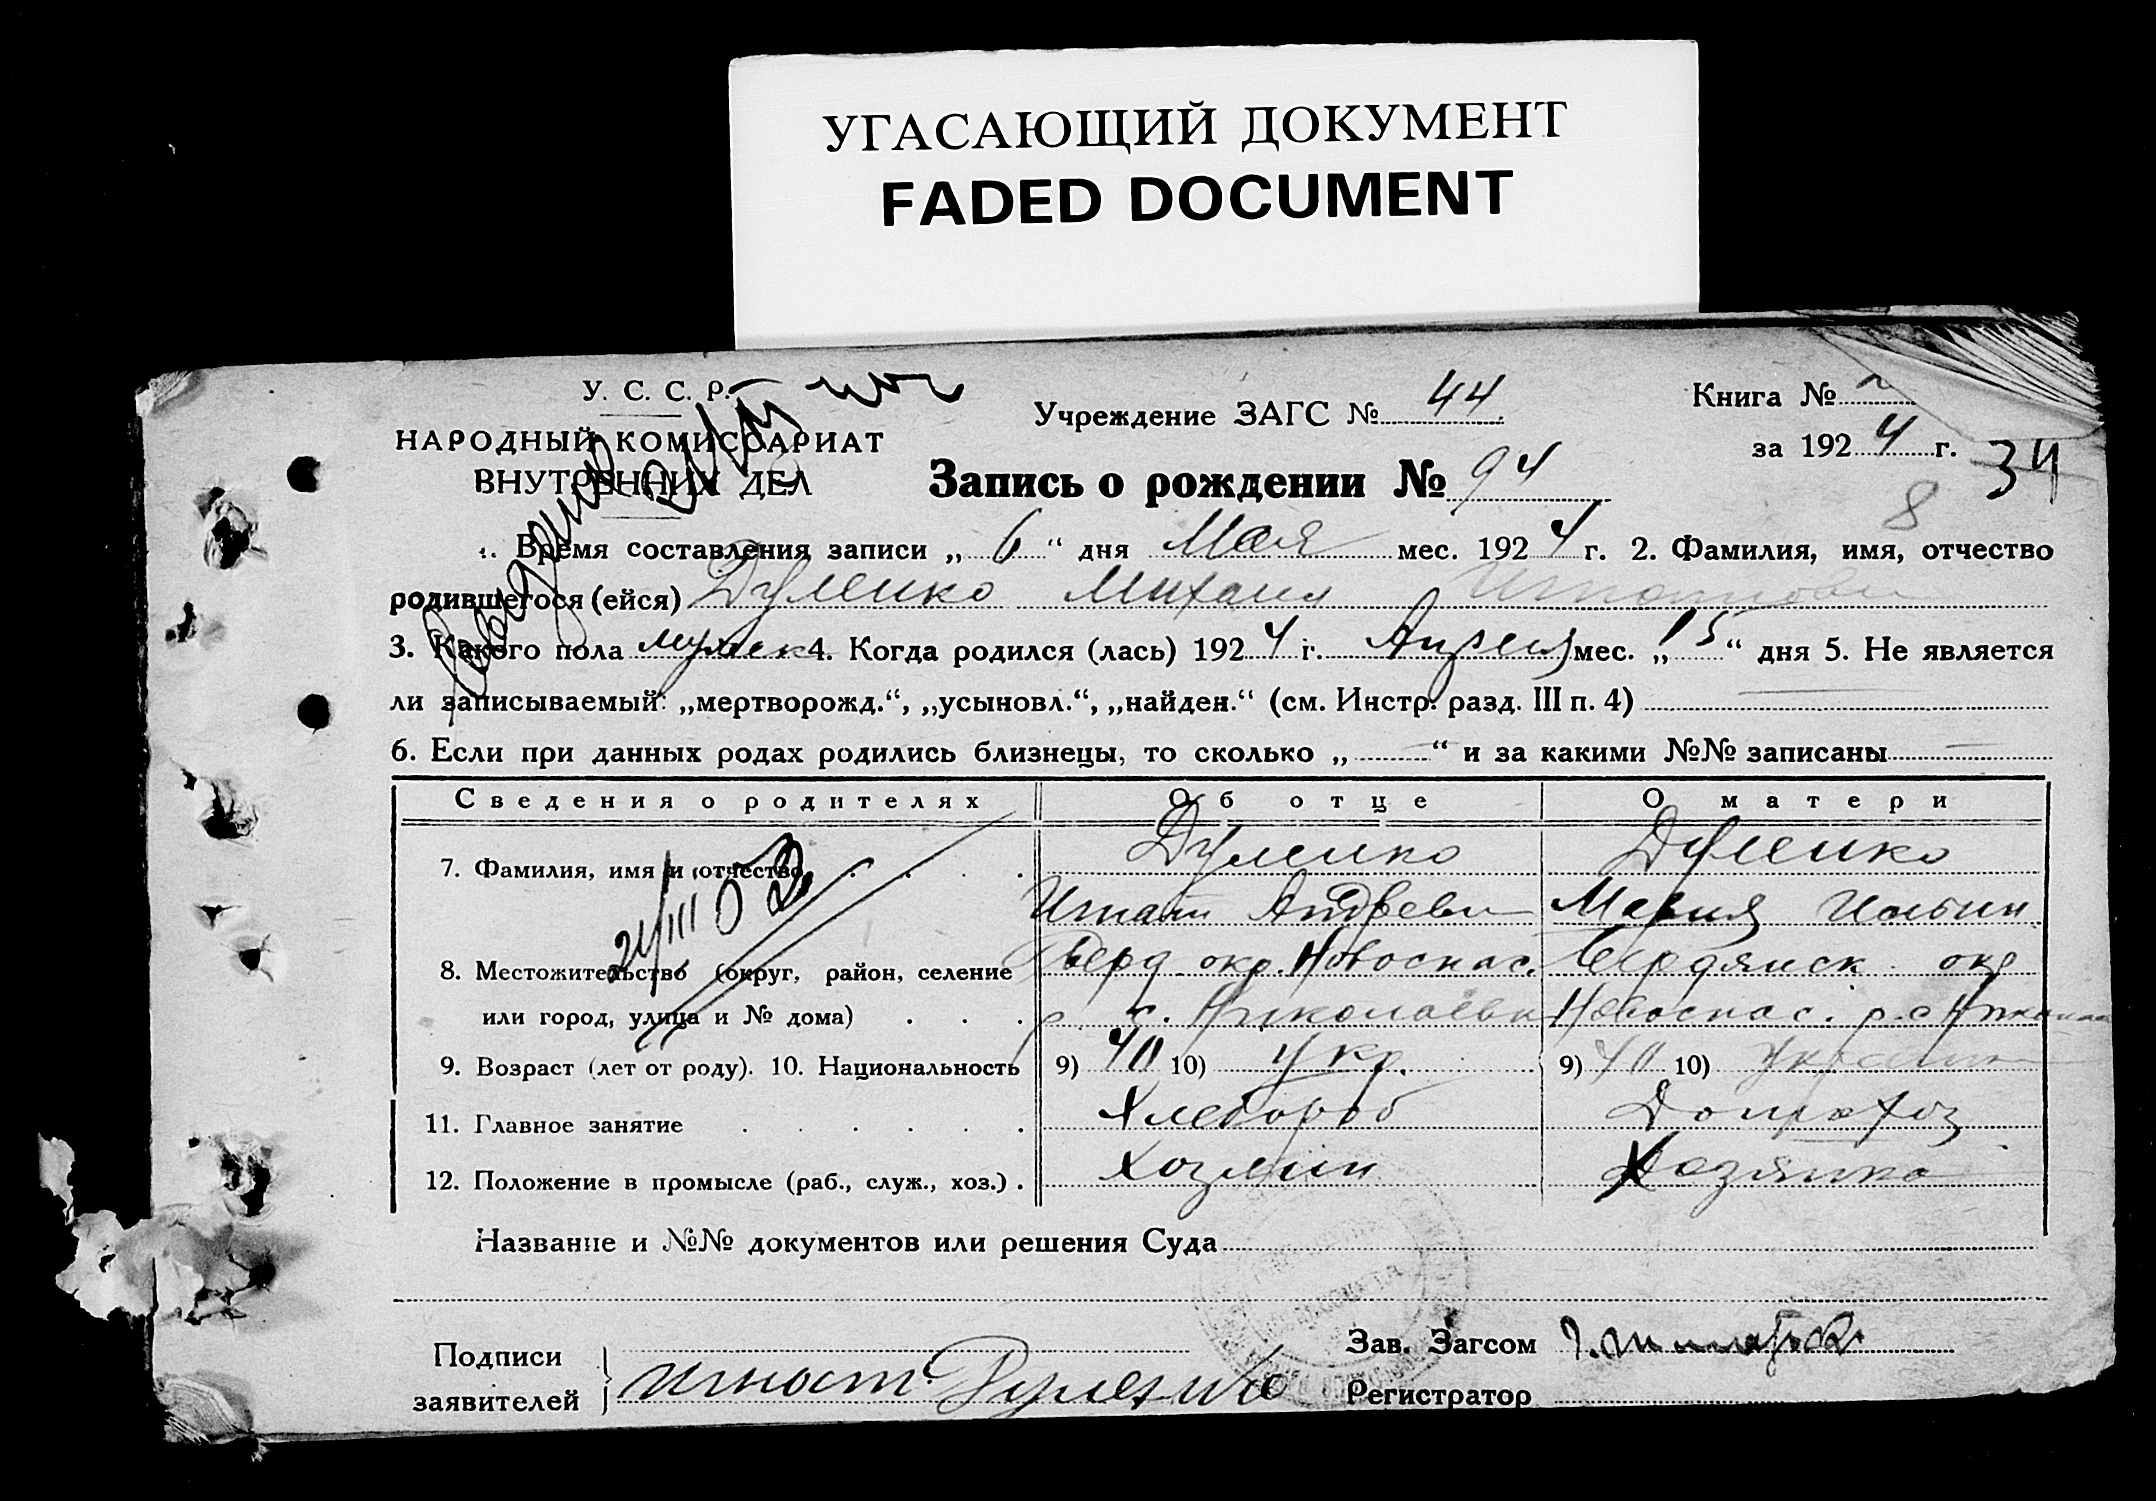 УГАСАЮЩИЙ ДОКУМЕНТ
FADED DOCUMENT
У. С. С. Р.
НАРОДНЫЙ КОМИССАРИАТ
ВНУТРЕННИХ ДЕЛ
Учреждение ЗАГС № 44
Книга №
за 1924 г.
34
Запись о рождении № 94
8
1. Время составления записи „ 6 “ дня Мая мес. 1924 г. 2. Фамилия, имя, отчество
родившегося (ейся) Думенко Михаил
3. Какого пола мужск 4. Когда родился (лась) 1924 г. Апреля мес. „ 15 “ дня 5. Не является
ли записываемый: „мертворожд.“, „усыновл.“, „найден.“ (см. Инстр. разд. III п. 4)
6. Если при данных родах родились близнецы, то сколько „ “ и за какими №№ записаны
Сведения о родителях Об отце О матери
7. Фамилия, имя и отчество Думенко Думенко
Игнат Андреев Мария
8. Местожительство (округ, район, селение Берд. окр. Новоспас. Бердянск окр
или город, улица и № дома) р. с. Николаевк Новоспас. р. с Никола
9. Возраст (лет от роду). 10. Национальность 9) 40 10) укр. 9) 40 10)
11. Главное занятие Хлебороб Домохоз
12. Положение в промысле (раб., служ., хоз.) Хозяин Хозяйка
Название и №№ документов или решения Суда
Подписи
заявителей
Игнат Думенко
Зав. Загсом
Регистратор